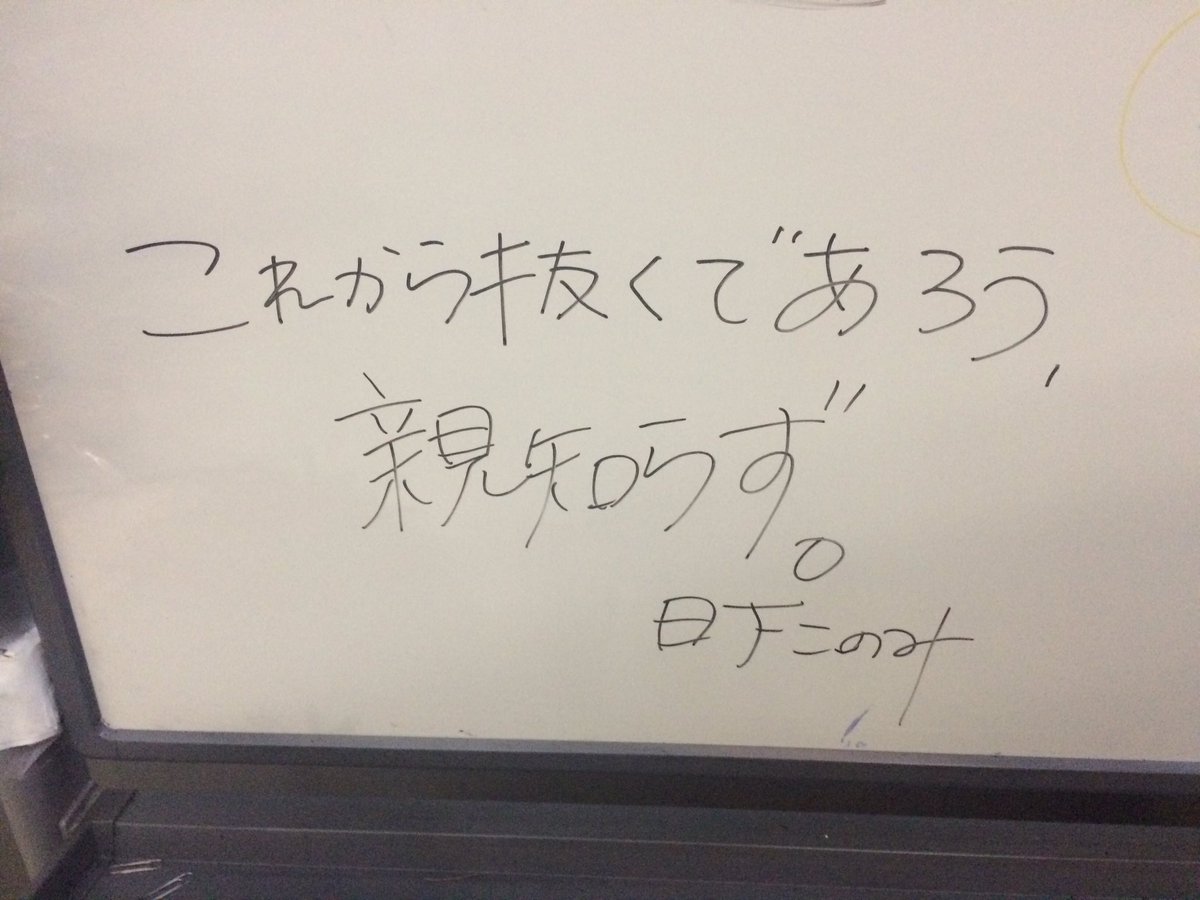 これから抜くであろう、
親知らず。
日下このみ